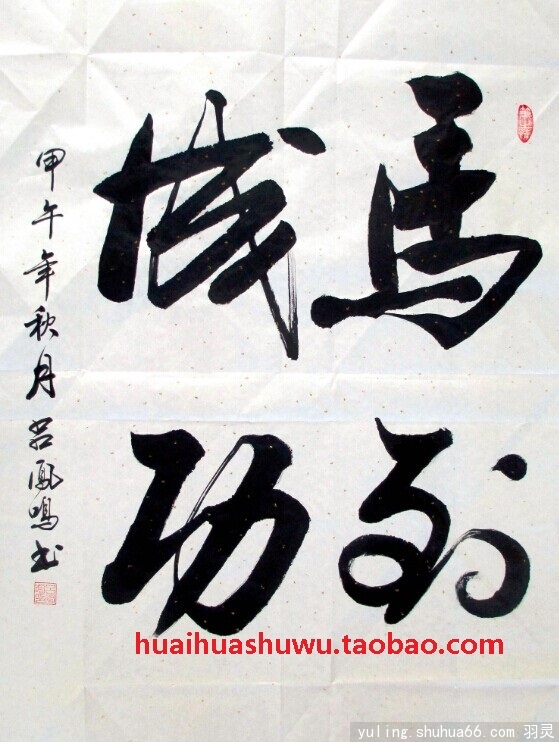 馬到
成功
甲午年秋月吕鳳鳴书
huaihuashuwu.taobao.com
yuling.shuhua66.com 羽灵